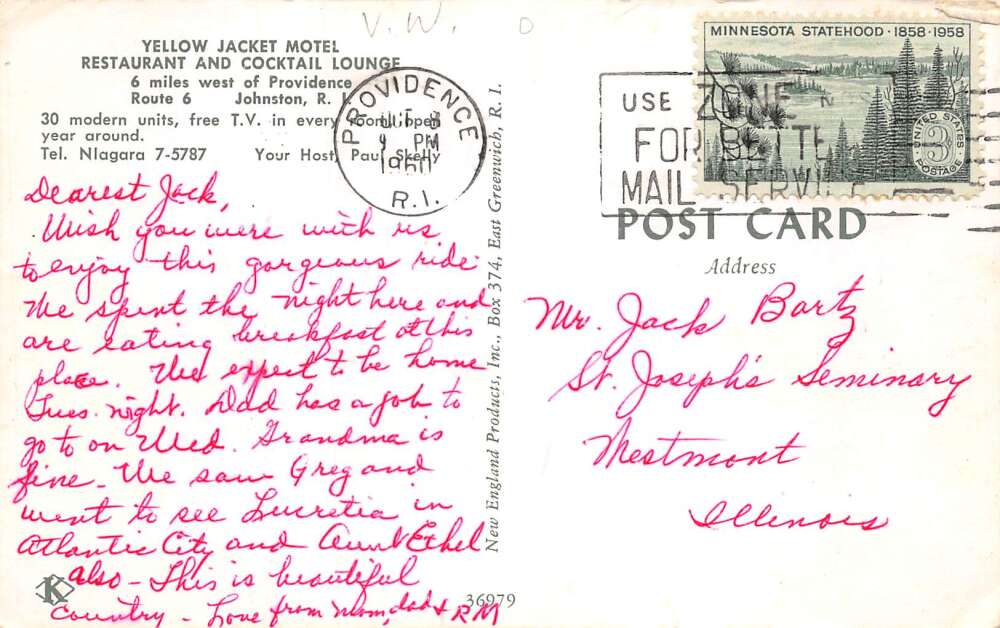 V.W. 0
YELLOW JACKET MOTEL
RESTAURANT AND COCKTAIL LOUNGE
6 miles west of Providence
Route 6 Johnston, R. I.
30 modern units, free T.V. in every room, open
year around.
Tel. NIagara 7-5787 Your Host, Paul Skelly
Dearest Jack,
Wish you were with us
to enjoy this gorgeous ride.
We spent the night here and
are eating breakfast at this
place. We expect to be home
Tues. night. Dad has a job to
go to on Wed. Grandma is
fine - We saw Greg and
went to see Lucretia in
Atlantic City and Aunt Ethel
also - This is beautiful
country - Love from Mom, dad & RM
K
New England Products, Inc., Box 374, East Greenwich, R. I.
36979
PROVIDENCE
PM
1960
R.I.
USE ZONE
FOR BETTE
MAIL SERVICE
MINNESOTA STATEHOOD · 1858 · 1958
UNITED STATES
3¢
POSTAGE
POST CARD
Address
Mr. Jack Bartz
St. Joseph's Seminary
Westmont
Illinois